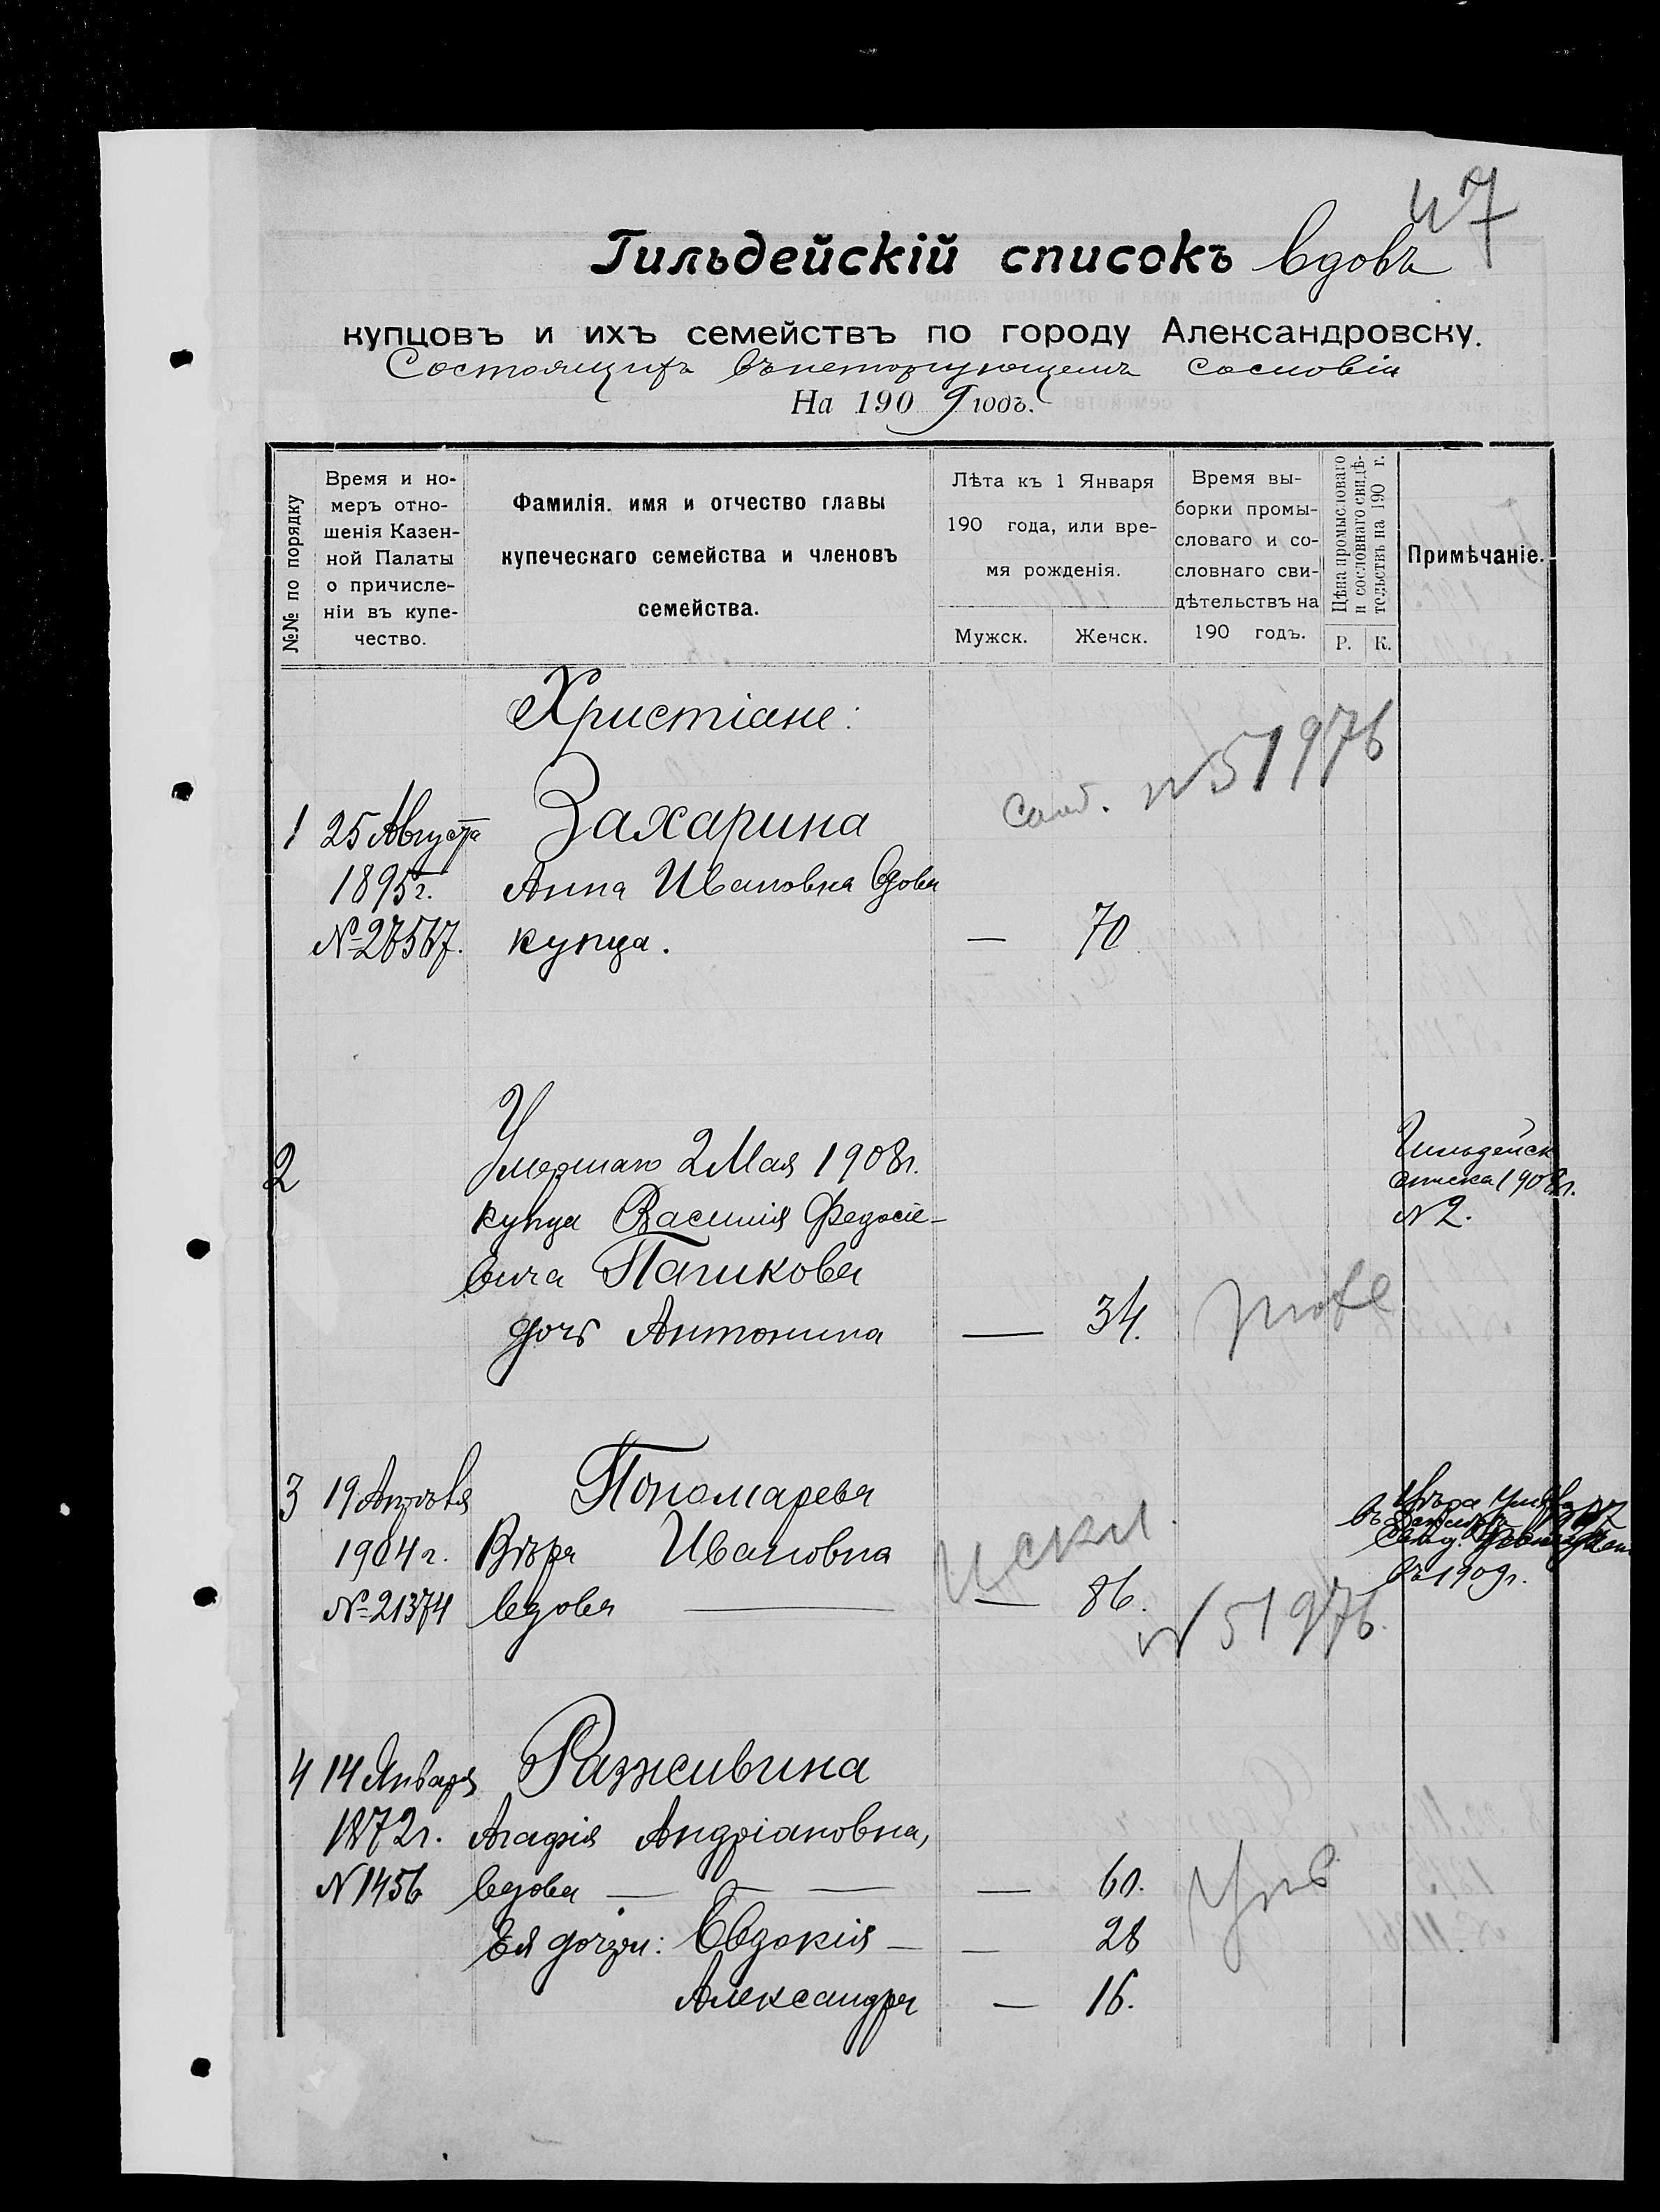 47
Гильдейскій списокъ вдовъ
купцовъ и ихъ семействъ по городу Александровску.
Состоящихъ въ неторгующемъ сословіи
На 1909 годъ.
№№ по порядку
Время и но-
меръ отно-
шенія Казен-
ной Палаты
о причисле-
ніи въ купе-
чество.
Фамилія. имя и отчество главы
купеческаго семейства и членовъ
семейства.
Лѣта къ 1 Января
190 года, или вре-
мя рожденія.
Мужск.
Женск.
Время вы-
борки промы-
словаго и со-
словнаго сви-
дѣтельствъ на
190 годъ.
Цѣна промысловаго
и сословнаго свидѣ-
тельствъ на 190 г.
Р.
К.
Примѣчаніе.
Христіане:
№ 51976
1 25 Августа Захарина
1895 г. Анна Ивановна вдова
купца. — 70
2 Умершаго 2 Мая 1908 г.
купца Василія Федосіе-
вича Пашкова
дочь Антонина — 34.
Гильдейск
списка 1908 г.
№ 2.
3 19 Пономарева
1904 г. Вѣра Ивановна
№ 21374 вдова — — 86.
Искл.
въ 1909 г.
№ 51976.
4 14 Января Разживина
1872 г. Агафія Андріановна,
№ 1456 вдова — — — — 60.
Ея дочери: Евдокія — — 28
Александра — 16.